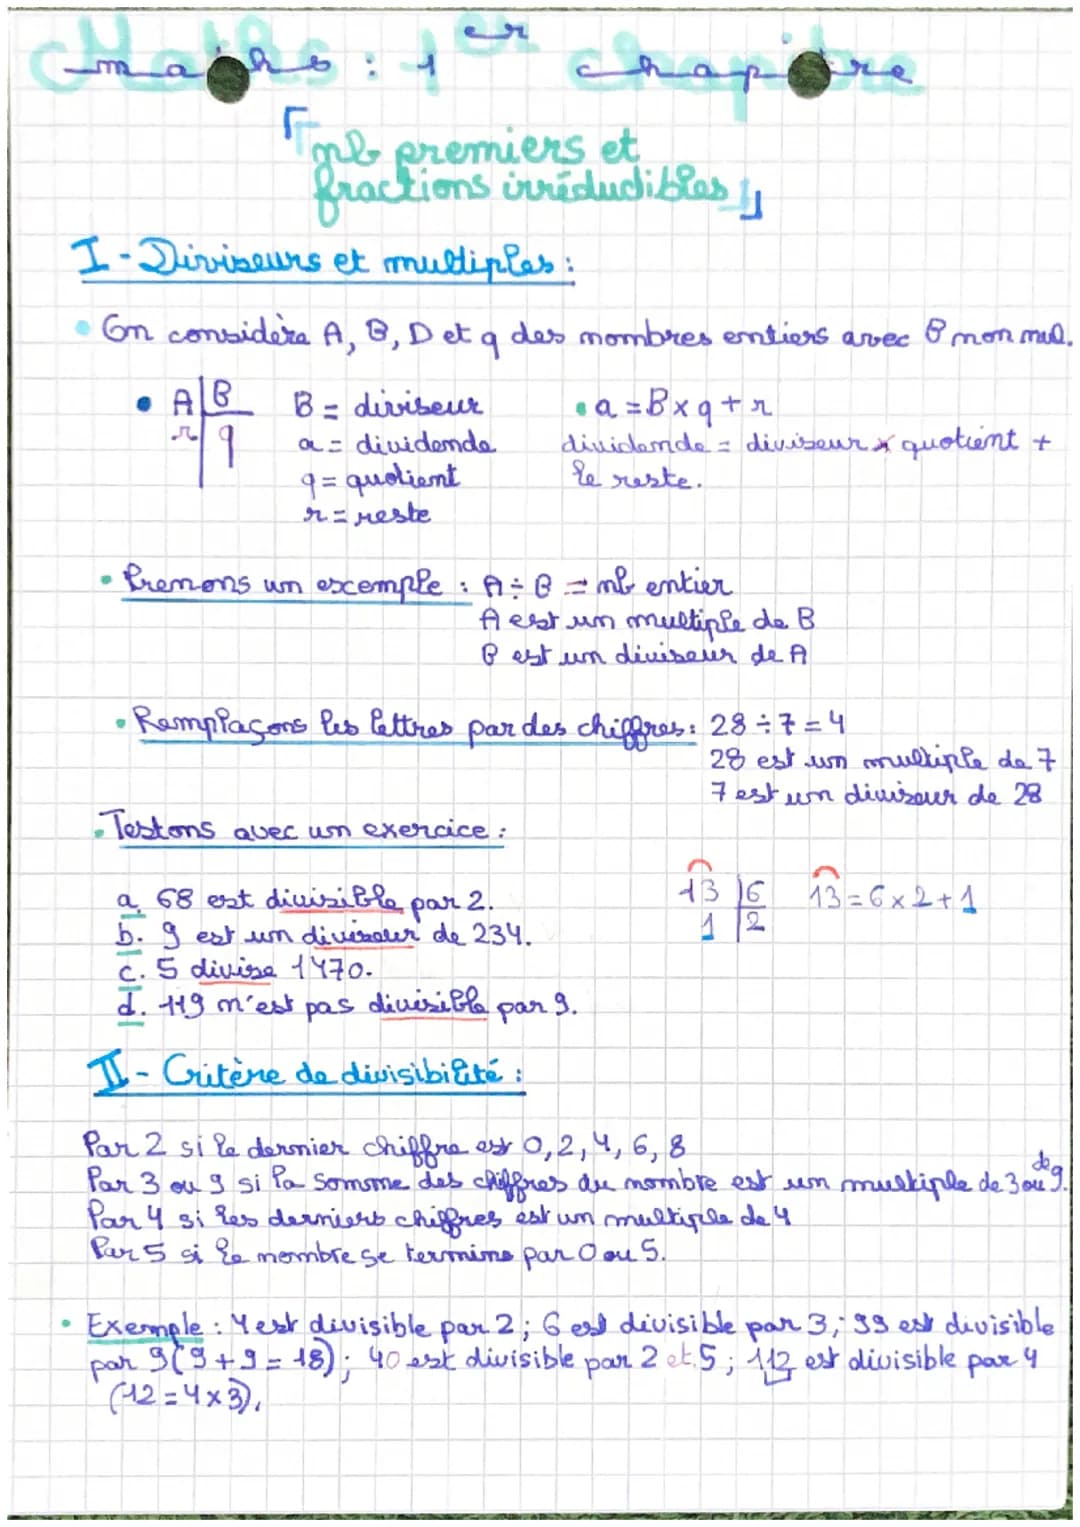 Maths : 1er chapitre
nb premiers et
fractions irrédudibles
I - Diviseurs et multiples :
• On considère A, B, D et q des nombres entiers avec B non nul.
• A | B
r | q
B = diviseur
a = dividende
q = quotient
r = reste
• a = B x q + r
dividende = diviseur x quotient +
le reste.
• Prenons un exemple : A ÷ B = nb entier
A est un multiple de B
B est un diviseur de A
• Remplaçons les lettres par des chiffres : 28 ÷ 7 = 4
28 est un multiple de 7
7 est un diviseur de 28
• Testons avec un exercice :
a. 68 est divisible par 2.
b. 9 est un diviseur de 234.
c. 5 divise 1470.
d. 119 n'est pas divisible par 9.
13 | 6
1 | 2
13 = 6 x 2 + 1
II - Critère de divisibilité :
Par 2 si le dernier chiffre est 0, 2, 4, 6, 8
Par 3 ou 9 si la somme des chiffres du nombre est un multiple de 3 ou de 9.
Par 4 si les derniers chiffres est un multiple de 4
Par 5 si le nombre se termine par 0 ou 5.
• Exemple : 4 est divisible par 2 ; 6 est divisible par 3 ; 99 est divisible
par 9 (9 + 9 = 18) ; 40 est divisible par 2 et 5 ; 112 est divisible par 4
(12 = 4 x 3).